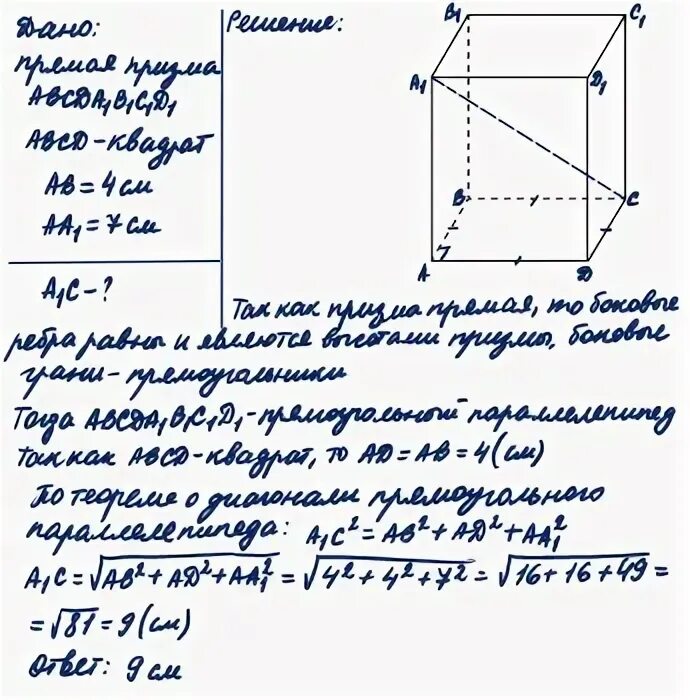 Дано:
прямая призма
ABCDA₁B₁C₁D₁
ABCD - квадрат
AB = 4 см
AA₁ = 7 см
A₁C - ?
Решение:
B₁ C₁
A₁ D₁
B C
A D
Так как призма прямая, то боковые
ребра равны и являются высотами призмы, боковые
грани - прямоугольники
Тогда ABCDA₁B₁C₁D₁ - прямоугольный параллелепипед
Так как ABCD - квадрат, то AD = AB = 4 (см)
По теореме о диагонали прямоугольного
параллелепипеда: A₁C² = AB² + AD² + AA₁²
A₁C = √AB² + AD² + AA₁² = √4² + 4² + 7² = √16 + 16 + 49 =
= √81 = 9 (см)
Ответ: 9 см